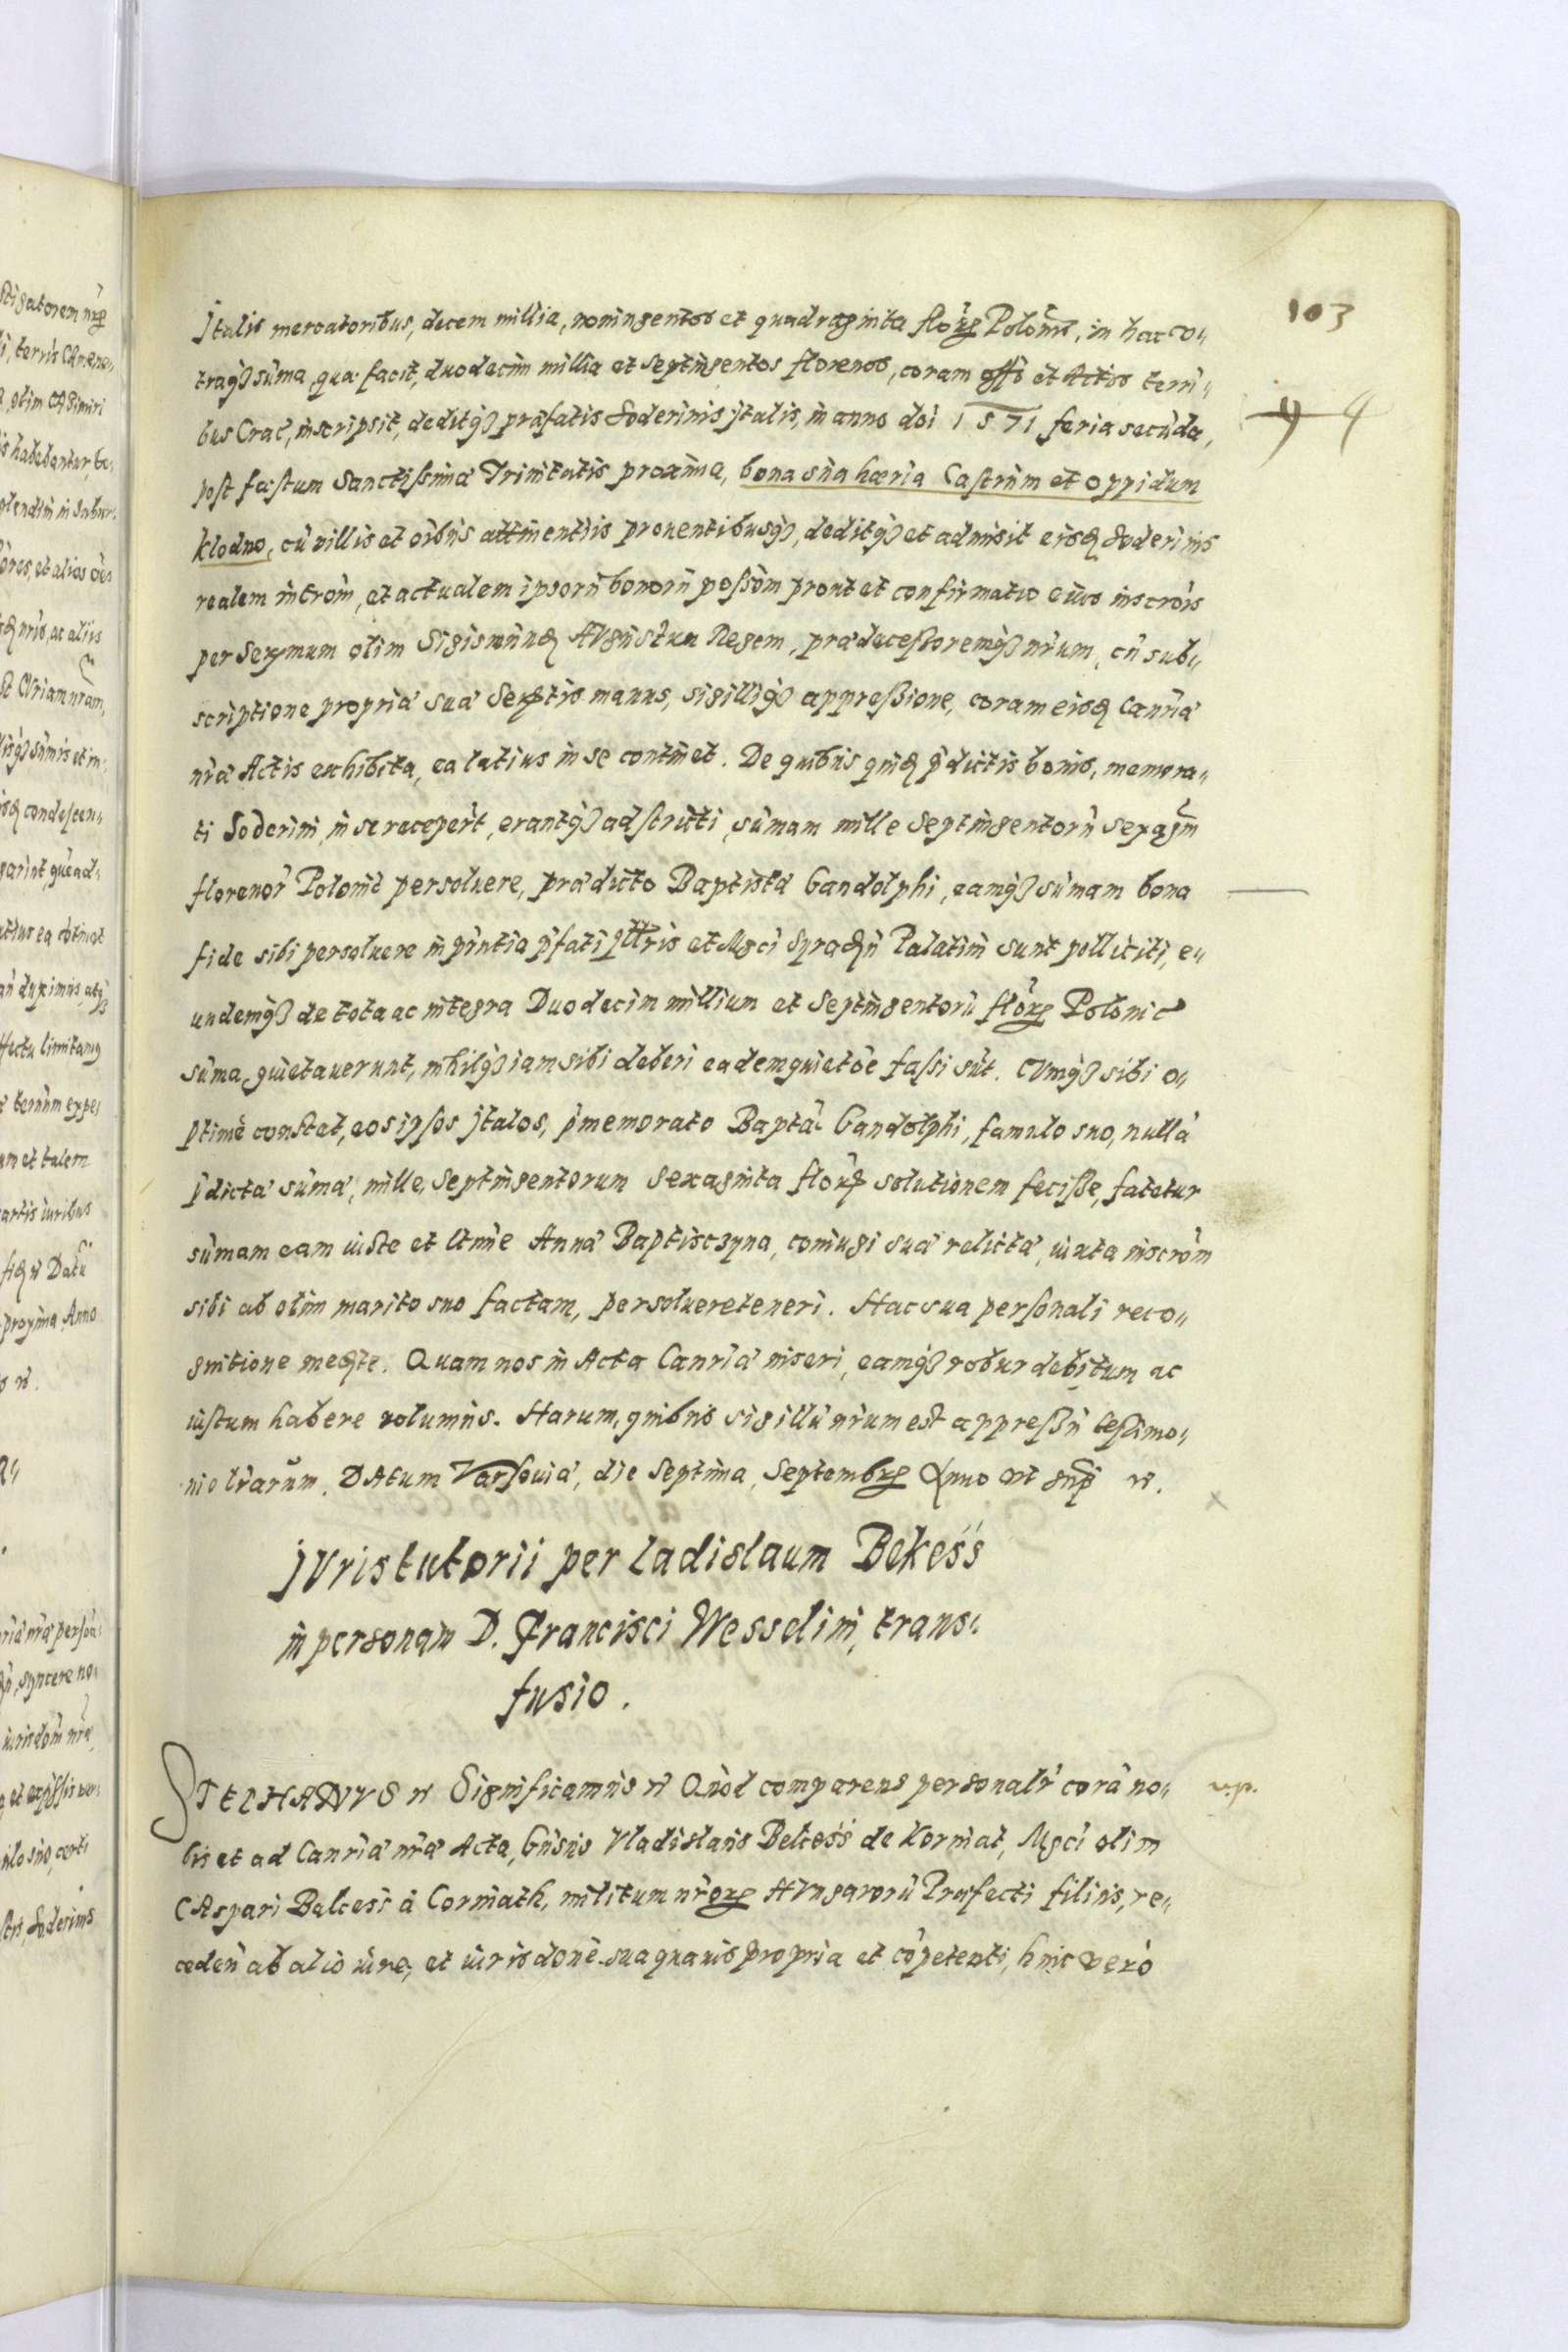 103
Italis mercatoribus, decem millia, noningentos et quadraginta flor Polon, in hac co„
traq3 sum̄a, qua facit, duodecim millia et septingentos florenos, coram offo et Actis terri„
bus Crac, inscripsit, deditq3 præfatis Soderinis Italis, in anno doi 1571 feria secūda,
4 4
post fæstum Sanctissimæ Trinitatis proxima, bona sua hæria Castrum et oppidum
klodno, cū villis et oibus attinentiis prouentibusq3, deditq3 et admisit eisd Soderinis
realem introm, et actualem ipsorū bonorū possom prout et confirmatio eius inscrois
per Serꝫmum olim Sigismund Augustum Regem, prædecessoremq3 nrum, cū sub„
scriptione propria sua Sertis manus, sigilliq3 appressione, coram eisd Canria
nra Actis exhibita, ea latius in se continet. De quibus quid pdictis bonis, memora„
ti Soderini, in se recepert, erantq3 adstricti, sumam mille septingentorū sexagin
florenor Polonic persoluere, prædicto Baptista Gandolphi, eamq3 sumam bona
fide sibi persoluere in pnntia pfati Illtris et Mgci Syradn Palatini sunt polliciti, e„
undemq3 de tota ac integra Duodecim millium et Septingentorū flor Polonic
suma quietauerunt, nihilq3 iam sibi deberi eadem quietoe fassi sūt. Cumq3 sibi o„
ptime constet, eos ipsos Italos, pmemorato Bapta Gandolphi, famulo suo, nulla
pdicta suma, mille, septingentorum sexaginta flor solutionem fecisse, fatetur
sumam eam iuste et ltime Anna Baptisczyna, coniugi sua relicta, iuxta inscrom
sibi ab olim marito suo factam, persoluere teneri. Hac sua personali reco„
gnitione mediate. Quam nos in Acta Canria inseri, eamq3 robur debitum ac
iustum habere volumus. Harum, quibus sigillū nrum est appressū testimo„
nio lrarum. DAtum Varsouiæ, die Septima, Septembr Anno ut sup
Iuris tutorii per Ladislaum Bekess
in personam D. Francisci Wesselini, trans„
fusio.
STEPHANVS Significamus Quod comparens personalr corā no„
v.p.
bis et ad Canria nra Acta, Gnsus Vladislaus Bekess de Korniat, Mgci olim
CAspari Bekess à Corniath, militum nror HVngarorū Præfecti filius, re„
cedens ab alio iure, et iurisdone sua quauis propria et cōpetenti, huic vero